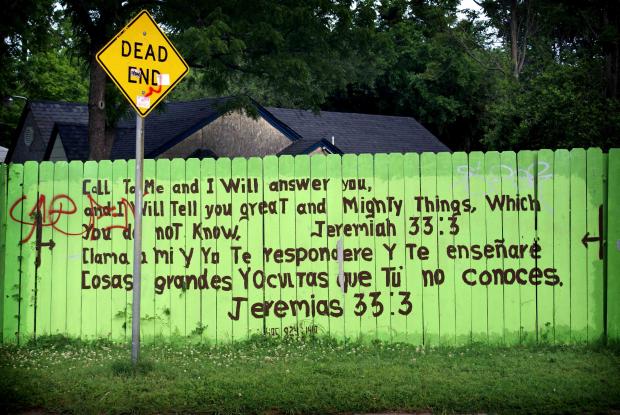 DEAD
END
Call To Me and I Will answer you,
and I Will Tell you greaT and Mighty Things, Which
You do noT Know. Jeremiah 33:3
Clama a mi Y Yo Te respondere Y Te enseñare
Cosas grandes YOculTas que Tú no conoces.
Jeremias 33:3